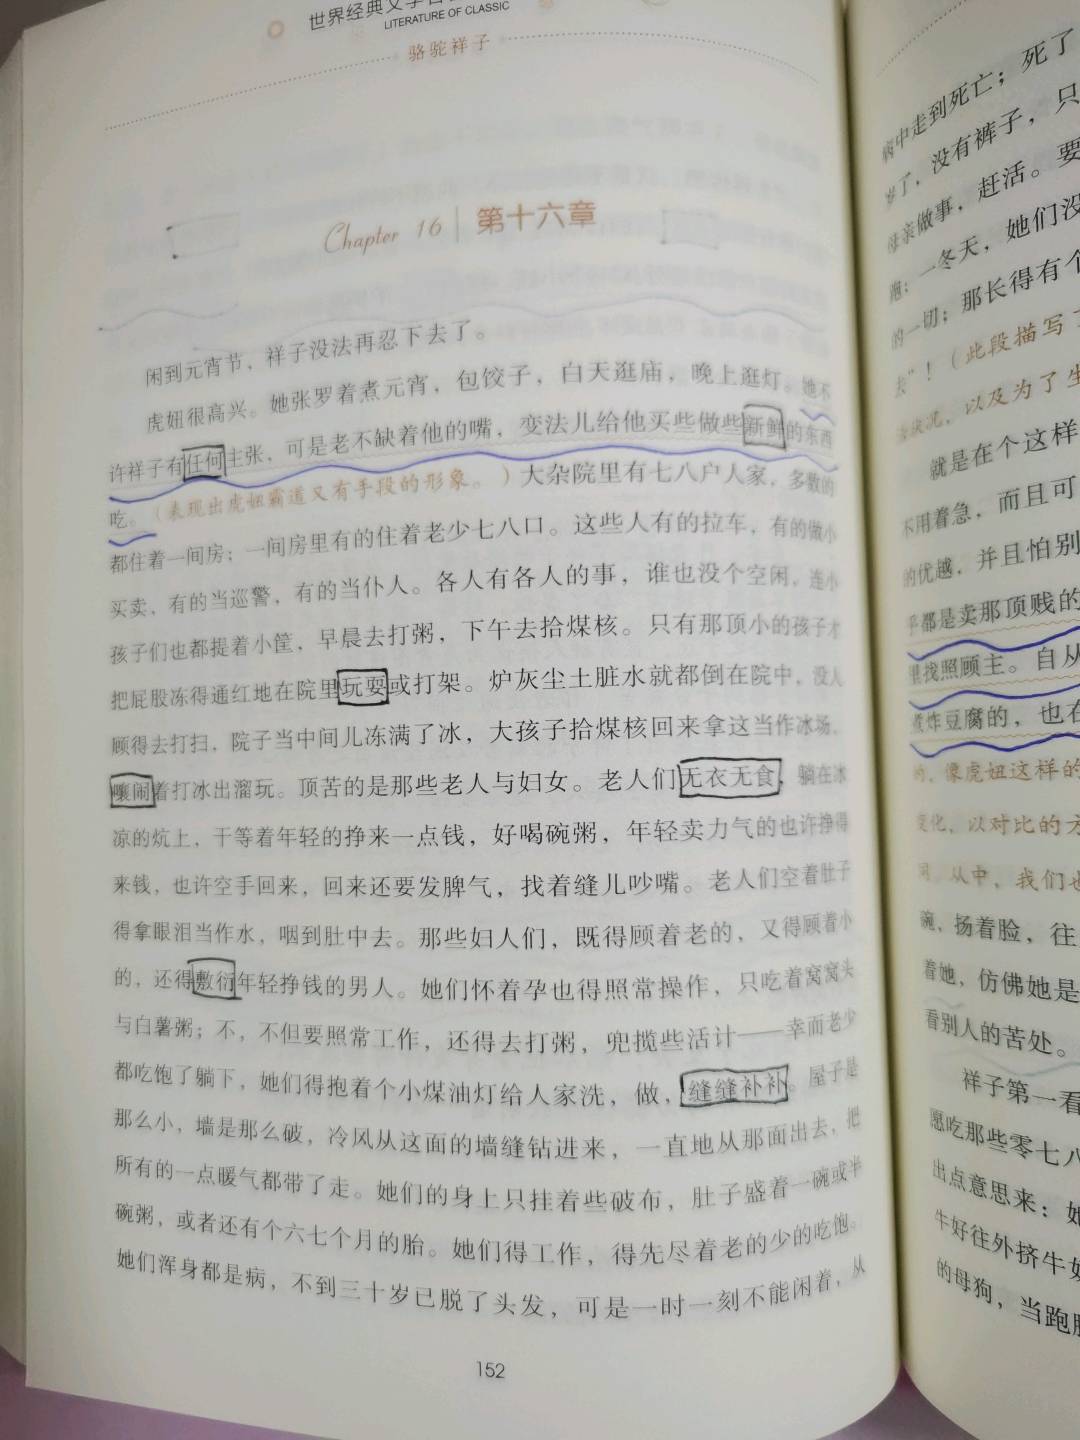 世界经典文学
LITERATURE OF CLASSIC
骆驼祥子
Chapter 16 | 第十六章
闲到元宵节，祥子没法再忍下去了。
虎妞很高兴。她张罗着煮元宵，包饺子，白天逛庙，晚上逛灯。她不
许祥子有任何主张，可是老不缺着他的嘴，变法儿给他买些做些新鲜的东西
吃。（表现出虎妞霸道又有手段的形象。）大杂院里有七八户人家，多数的
都住着一间房；一间房里有的住着老少七八口。这些人有的拉车，有的做小
买卖，有的当巡警，有的当仆人。各人有各人的事，谁也没个空闲，连小
孩子们也都提着小筐，早晨去打粥，下午去拾煤核。只有那顶小的孩子才
把屁股冻得通红地在院里玩耍或打架。炉灰尘土脏水就都倒在院中，没人
顾得去打扫，院子当中间儿冻满了冰，大孩子拾煤核回来拿这当作冰场，
嚷闹着打冰出溜玩。顶苦的是那些老人与妇女。老人们无衣无食，躺在冰
凉的炕上，干等着年轻的挣来一点钱，好喝碗粥，年轻卖力气的也许挣得
来钱，也许空手回来，回来还要发脾气，找着缝儿吵嘴。老人们空着肚子
得拿眼泪当作水，咽到肚中去。那些妇人们，既得顾着老的，又得顾着小
的，还得敷衍年轻挣钱的男人。她们怀着孕也得照常操作，只吃着窝窝头
与白薯粥；不，不但要照常工作，还得去打粥，兜揽些活计——幸而老少
都吃饱了躺下，她们得抱着个小煤油灯给人家洗，做，缝缝补补。屋子是
那么小，墙是那么破，冷风从这面的墙缝钻进来，一直地从那面出去，把
所有的一点暖气都带了走。她们的身上只挂着些破布，肚子盛着一碗或半
碗粥，或者还有个六七个月的胎。她们得工作，得先尽着老的少的吃饱。
她们浑身都是病，不到三十岁已脱了头发，可是一时一刻不能闲着，从
152
病中走到死亡；死了
岁了，没有裤子，只
母亲做事，赶活。要
跑；一冬天，她们没
的一切；那长得有个
去”！（此段描写了
状况，以及为了生
就是在个这样
不用着急，而且可
的优越，并且怕别
乎都是卖那顶贱的
里找照顾主。自从
煮炸豆腐的，也在
的，像虎妞这样的
变化，以对比的方
同，从中，我们也
碗，扬着脸，往
着她，仿佛她是
看别人的苦处。
祥子第一看
愿吃那些零七八
出点意思来：她
牛好往外挤牛奶
的母狗，当跑腿